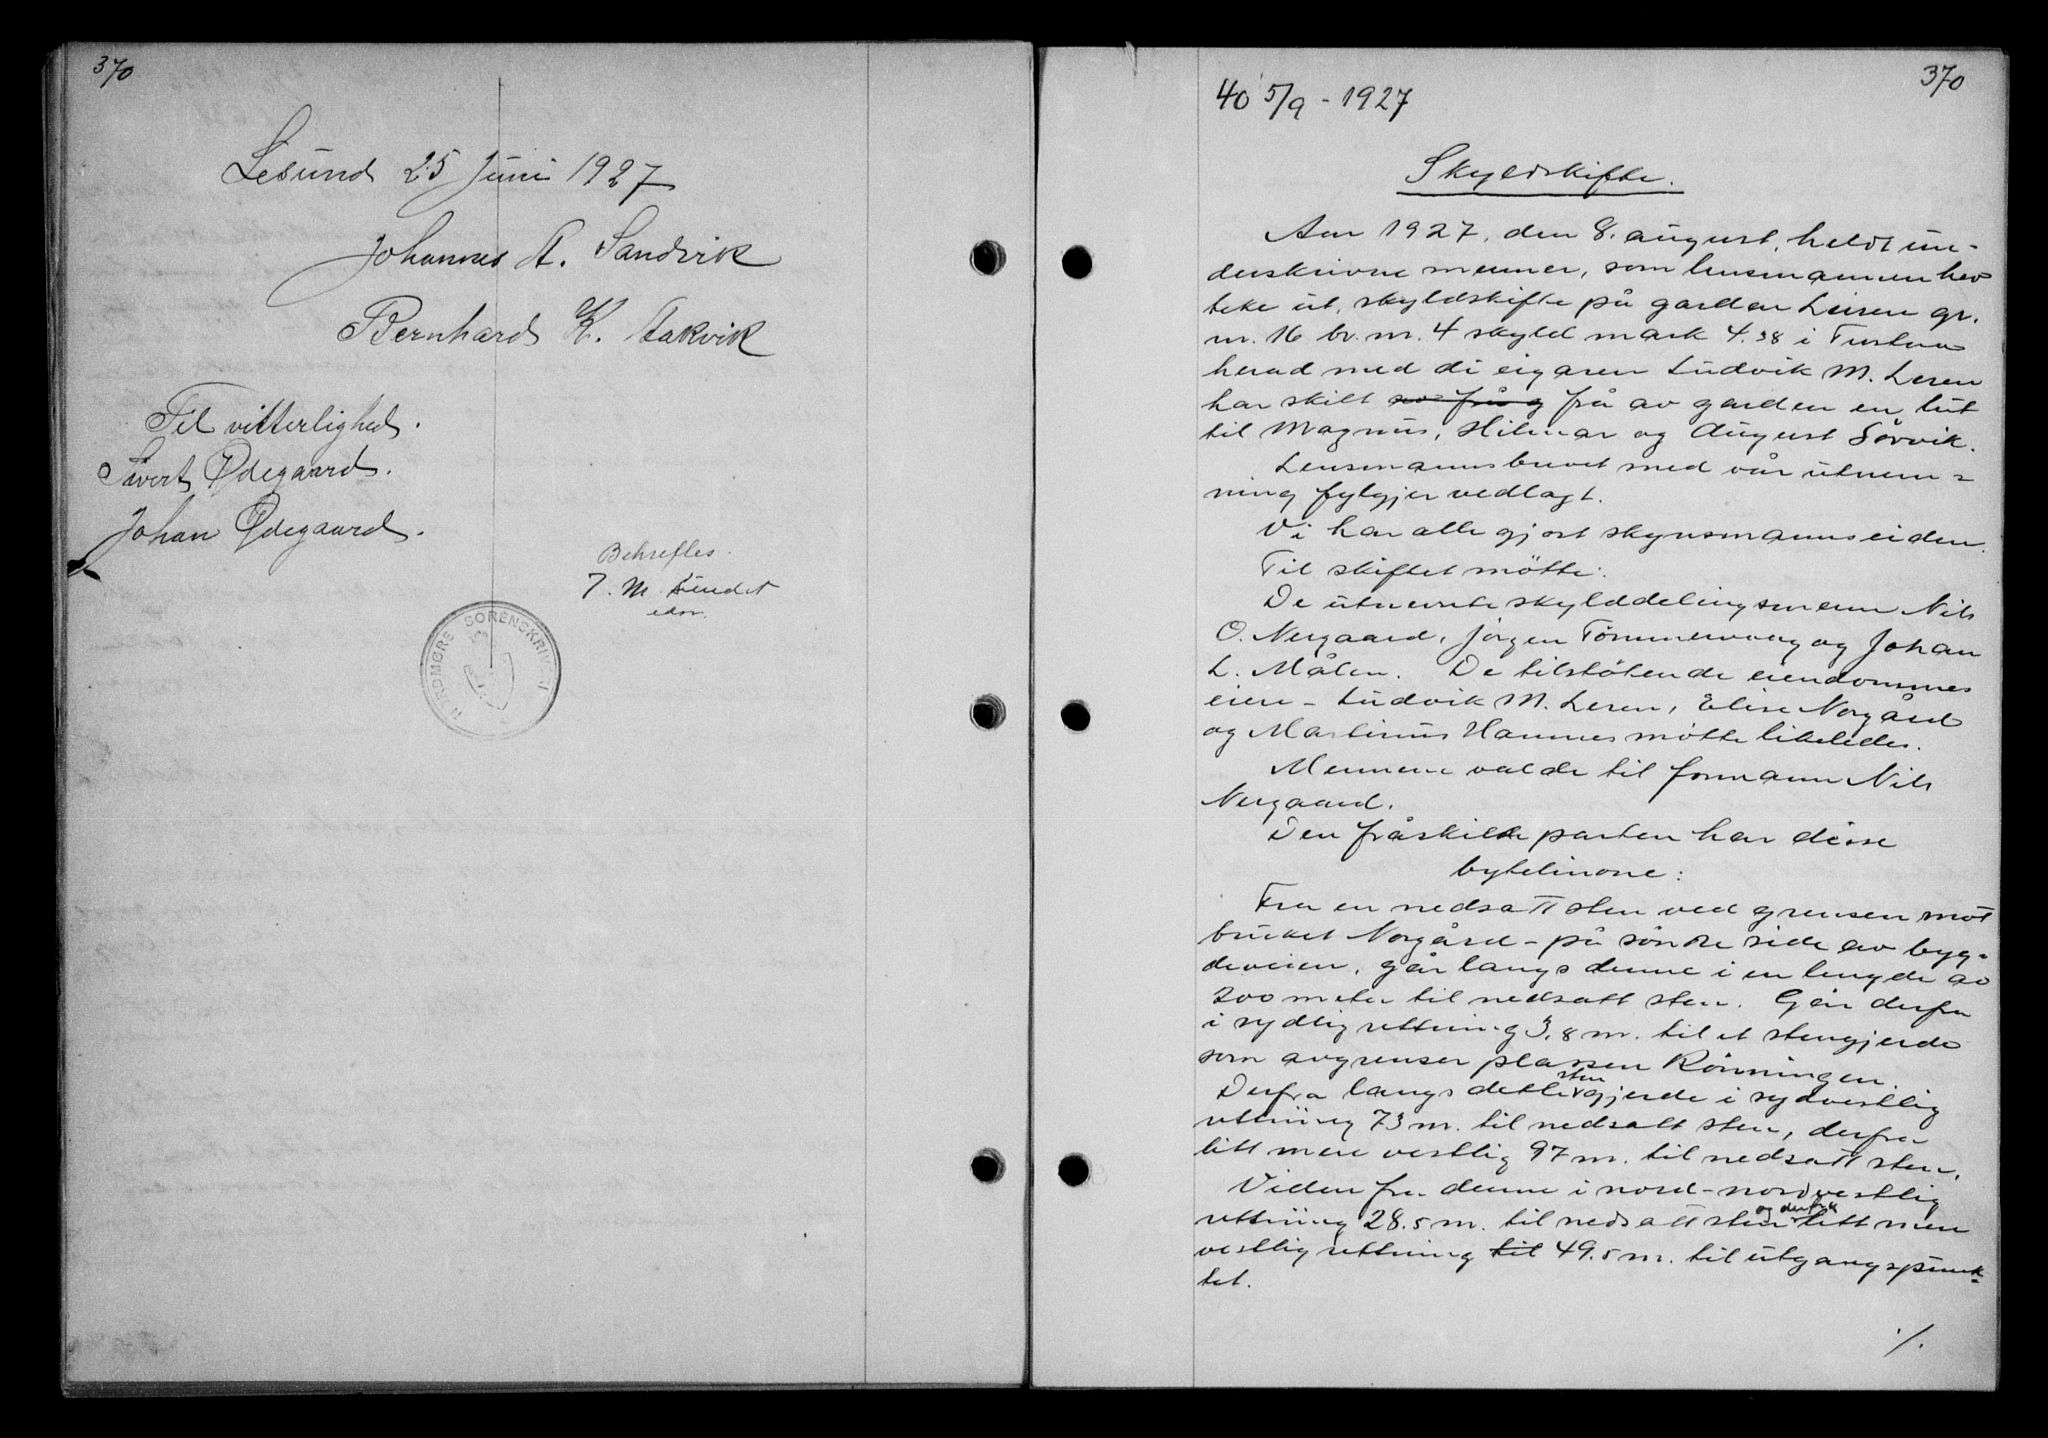 370
Lesund 25 Juni 1927
Johannes A. Sandvik
Bernhard K. Aakvik
Til vitterlighed.
Sivert Ødegaard.
Johan Ødegaard.
Bekreftes.
T. M. Sundet
edsv.
NORDMØRE SORENSKRIVERI
370
40 5/9 - 1927
Skyldskifte.
Aar 1927, den 8. august, heldt un-
derskrivne menner, som lensmannen hev
teke ut, skyldskifte på garden Leiren gr.
nr. 16 br. nr. 4 skyld mark 4.38 i Tustna
herad med di eigaren Ludvik M. Leren
har skilt frå av garden en lut
til Magnus, Hilmar og August Sørvik.
Lensmannsbrevet med vår utnem-
ning fylgjer vedlagt.
Vi har alle gjort skynsmannseiden.
Til skiftet møtte:
De utnevnte skylddelingsmenn Nils
O. Nergaard, Jørgen Tømmervaag og Johan
L. Målen. De tilstøtende eiendommes
eiere - Ludvik M. Leren, Elise Norgård
og Martinus Hamnes møtte likeledes.
Mennene valde til formann Nils
Nergaard.
Den fråskilde parten har disse
bytelinone:
Fra en nedsatt sten ved grensen mot
bruket Norgård - på søndre side av byg-
deveien, går langs denne i en lengde av
200 meter til nedsatt sten. Går derfra
i sydlig rettning 3,8 m. til et stengjerde
som avgrenser plassen Rønningen.
Derfra langs dette stengjerde i sydvestlig
rettning 73 m. til nedsatt sten, derfra
litt mere vestlig 97 m. til nedsatt sten.
Viden fra denne i nord-nordvestlig
rettning 28.5 m. til nedsatt sten og derfra litt mere
vestlig rettning til 49.5 m. til utgangspunk-
tet.
./.